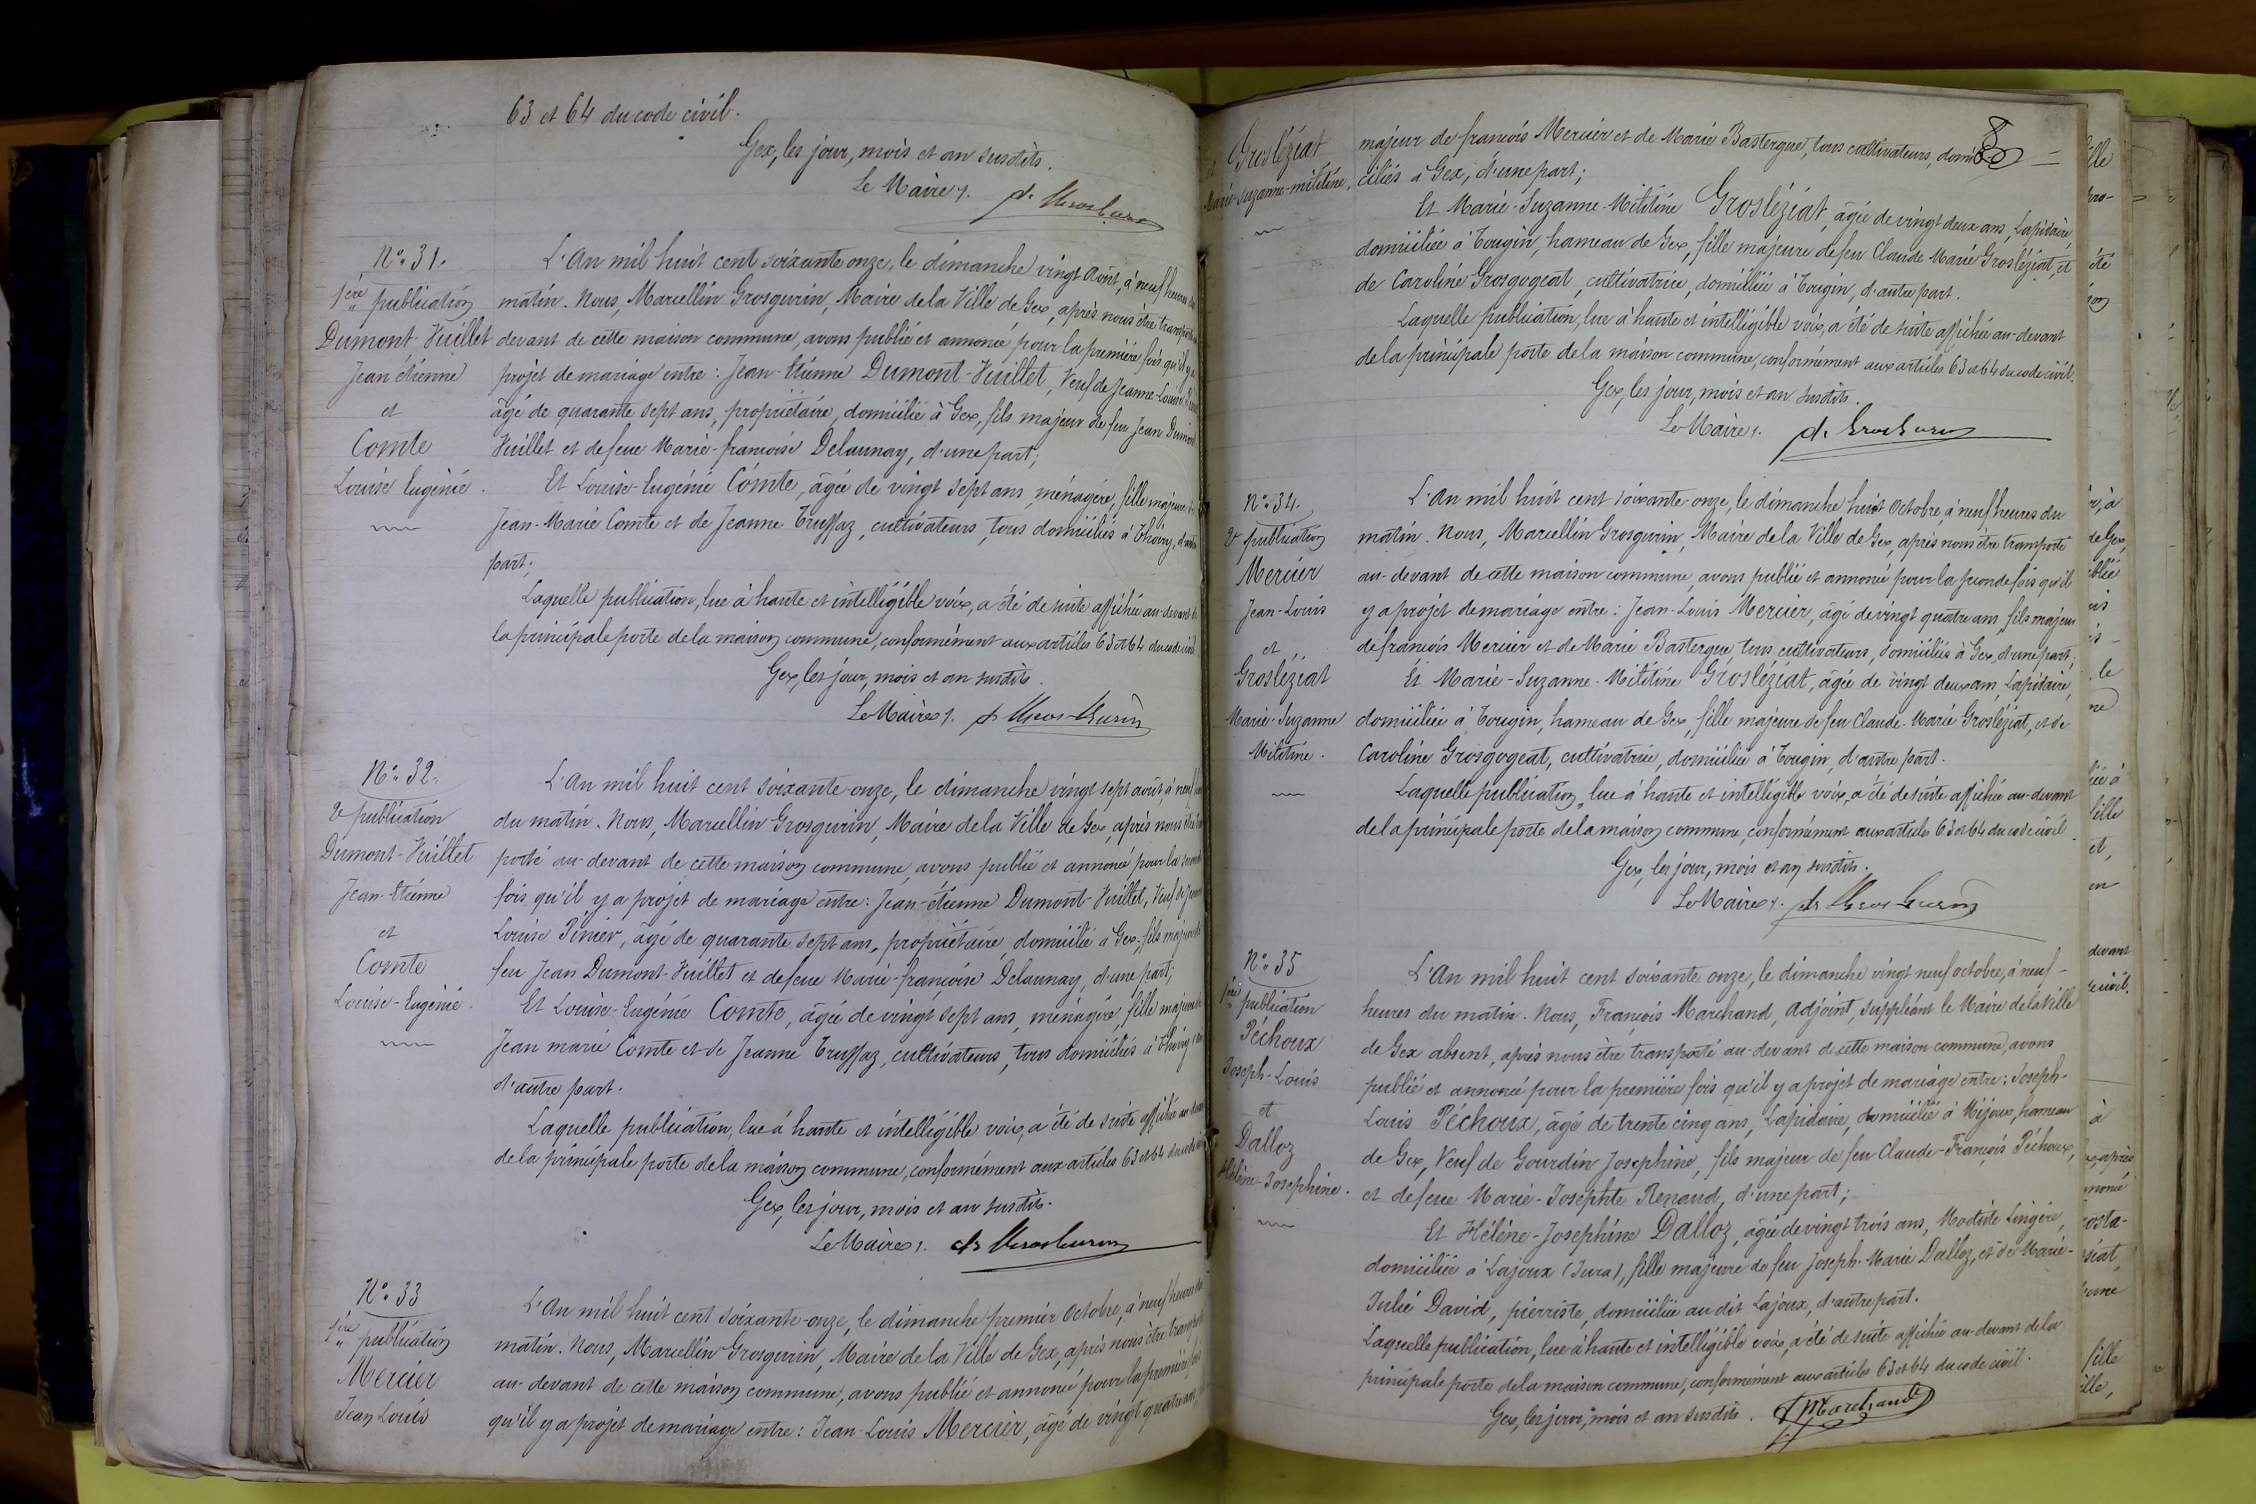 63 et 64 du code civil.
Gex, les jour, mois et an susdits.
Le Maire,
N° 31.
1ère publication
Dumont-Vuillet
Jean étienne
et
Comte
Louise Eugénie.
L'An mil huit cent soixante onze, le dimanche vingt Août, à neuf heures du
matin. Nous, Marcellin Grosgurin, Maire de la Ville de Gex, après nous être transporté au
devant de cette maison commune, avons publié et annoncé pour la première fois qu'il y a
projet de mariage entre : Jean-Etienne Dumont-Vuillet, Veuf de Jeanne-Louise
âgé de quarante sept ans, propriétaire, domicilié à Gex, fils majeur de feu Jean Dumont
Vuillet et de feue Marie-françoise Delaunay, d'une part;
Et Louise-Eugénie Comte, âgée de vingt sept ans, ménagère, fille majeure de
Jean-Marie Comte et de Jeanne Truffaz, cultivateurs, tous domiciliés à Thoiry, d'autre
part;
Laquelle publication, lue à haute et intelligible voix, a été de suite affichée au-devant de
la principale porte de la maison commune, conformément aux articles 63 et 64 du code civil
Gex, les jour, mois et an susdits.
Le Maire,
N° 32.
2e publication
Dumont-Vuillet
Jean-Etienne
et
Comte
Louise-Eugénie.
L'An mil huit cent soixante-onze, le dimanche vingt sept août, à neuf heures
du matin. Nous, Marcellin Grosgurin, Maire de la Ville de Gex, après nous être trans
porté au-devant de cette maison commune, avons publié et annoncé pour la seconde
fois qu'il y a projet de mariage entre: Jean-étienne Dumont-Vuillet, Veuf de Jeanne
Louise Pinier, âgé de quarante sept ans, propriétaire, domicilié à Gex, fils majeur de
feu Jean Dumont-Vuillet et de feue Marie-françoise Delaunay, d'une part;
Et Louise-Eugénie Comte, âgée de vingt sept ans, ménagère, fille majeure de
Jean marie Comte et de Jeanne Truffaz, cultivateurs, tous domiciliés à Thoiry
d'autre part.
Laquelle publication, lue à haute et intelligible voix, a été de suite affichée au-devant
de la principale porte de la maison commune, conformément aux articles 63 et 64 du code civil
Gex, les jour, mois et an susdits.
Le Maire,
N° 33
1ère publication
Mercier
Jean Louis
L'An mil huit cent soixante-onze, le dimanche premier Octobre, à neuf heures du
matin. Nous, Marcellin Grosgurin, Maire de la Ville de Gex, après nous être transporté
au-devant de cette maison commune, avons publié et annoncé pour la première fois
qu'il y a projet de mariage entre: Jean-Louis Mercier, âgé de vingt quatre ans,
Grosléziat
Marie-suzanne-mélitine.
majeur de françois Mercier et de Marie Bastergue, tous cultivateurs, domi-
ciliés à Gex, d'une part;
Et Marie-Suzanne-Mélitine Grosléziat, âgée de vingt deux ans, Lapidaire,
domiciliée à Tougin, hameau de Gex, fille majeure de feu Claude Marie Grosléziat, et
de Caroline Grosgogeat, cultivatrice, domiciliée à Tougin, d'autre part.
Laquelle publication, lue à haute et intelligible voix, a été de suite affichée au-devant
de la principale porte de la maison commune, conformément aux articles 63 et 64 du code civil.
Gex, les jour, mois et an susdits.
Le Maire,
N° 34.
2e publication
Mercier
Jean-Louis
et
Grosléziat
Marie-Suzanne
Mélitine.
L'An mil huit cent soixante-onze, le dimanche huit Octobre, à neuf heures du
matin. Nous, Marcellin Grosgurin, Maire de la Ville de Gex, après nous être transporté
au-devant de cette maison commune, avons publié et annoncé pour la seconde fois qu'il
y a projet de mariage entre: Jean-Louis Mercier, âgé de vingt quatre ans, fils majeur
de françois Mercier et de Marie Bastergue, tous cultivateurs, domiciliés à Gex, d'une part,
Et Marie-Suzanne-Mélitine Grosléziat, âgée de vingt deux ans, Lapidaire,
domiciliée à Tougin, hameau de Gex, fille majeure de feu Claude-Marie Grosléziat, et de
Caroline Grosgogeat, cultivatrice, domiciliée à Tougin, d'autre part.
Laquelle publication, lue à haute et intelligible voix, a été de suite affichée au-devant
de la principale porte de la maison commune, conformément aux articles 63 et 64 du code civil
Gex, les jour, mois et an susdits.
Le Maire,
N° 35
1ère publication
Péchoux
Joseph-Louis
et
Dalloz
Hélène-Josephine.
L'An mil huit cent soixante onze, le dimanche vingt neuf octobre, à neuf-
heures du matin. Nous, François Marchand, Adjoint, suppléant le Maire de la Ville
de Gex absent, après nous être transporté au-devant de cette maison commune, avons
publié et annoncé pour la première fois qu'il y a projet de mariage entre: Joseph-
Louis Péchoux, âgé de trente cinq ans, Lapidaire, domicilié à Mijoux, hameau
de Gex, Veuf de Gourdin Josephine, fils majeur de feu Claude-François Péchoux,
et de feue Marie-Josephte Renaud, d'une part;
Et Hélène-Josephine Dalloz, âgée de vingt trois ans, Modiste Lingère,
domiciliée à Lajoux (Jura), fille majeure de feu Joseph-Marie Dalloz, et de Marie-
Julie David, pierriste, domiciliée au dit Lajoux, d'autre part.
Laquelle publication, lue à haute et intelligible voix, a été de suite affichée au-devant de la
principale porte de la maison commune, conformément aux articles 63 et 64 du code civil.
Gex, les jour, mois et an susdits.
Marchand